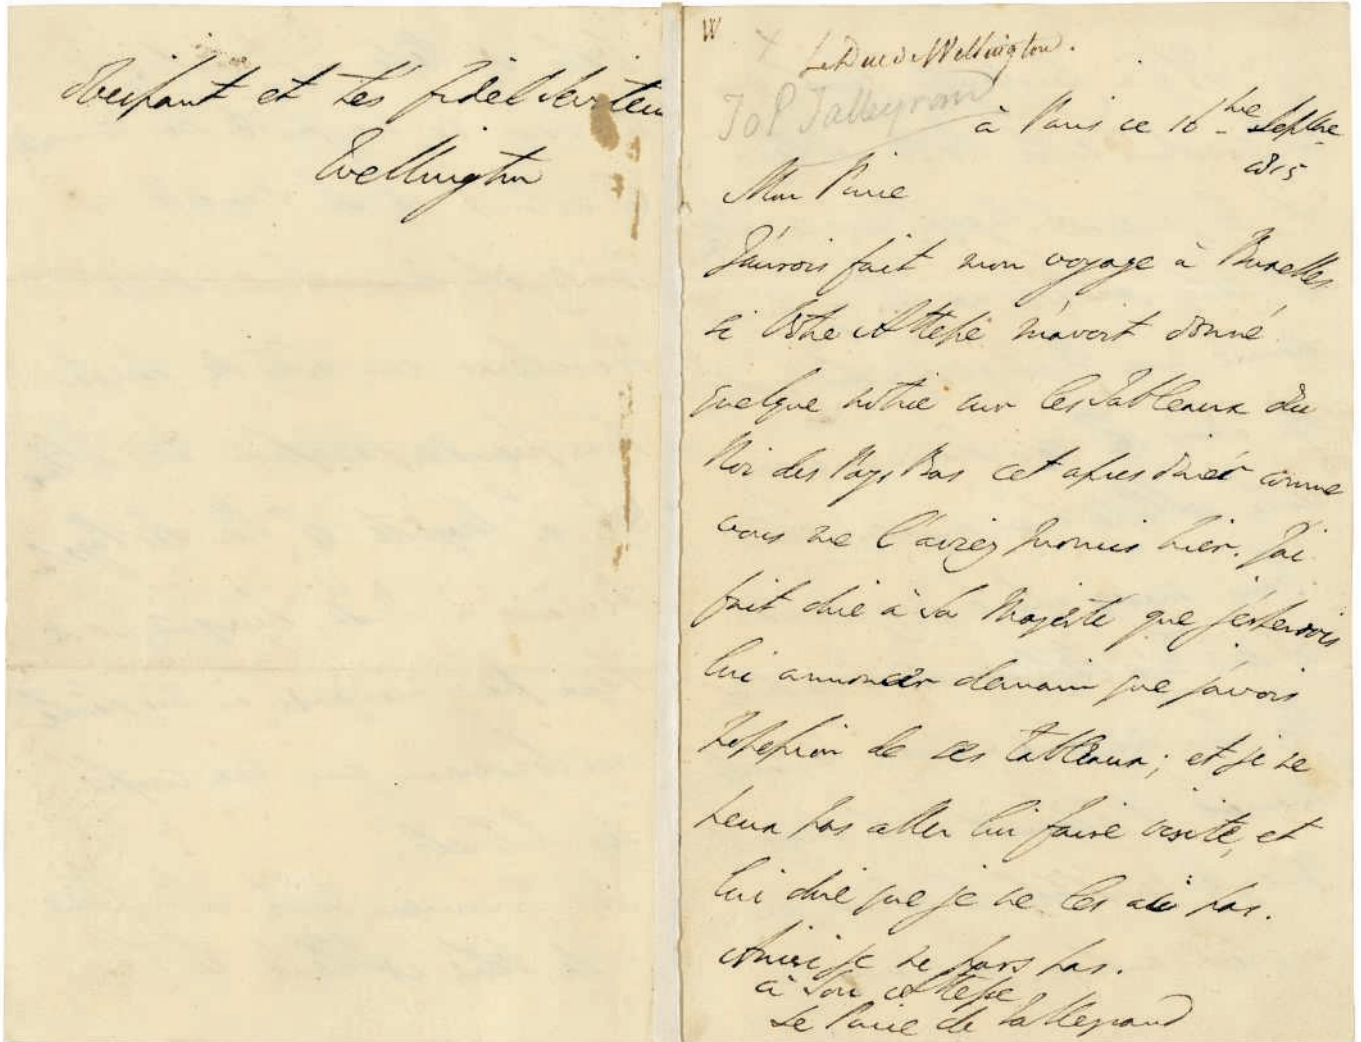 Obeissant et très fidel Serviteur
Wellington
W
Le Duc de Wellington.
To P Talleyrand
à Paris ce 16me Septbre
1815
Mon Prince
J'aurois fait mon voyage à Bruxelles
si Votre Altesse m'avoit donné
quelque notice sur les Tableaux du
Roi des Pays Bas cet apres diner comme
vous me l'aviez promis hier. J'ai
fait dire à Sa Majesté que j'esperois
lui annoncer demain que j'avois
possession de ses tableaux; et je ne
peux pas aller lui faire visite, et
lui dire que je ne les ai pas.
Ainsi je ne pars pas.
à Son Altesse
Le Prince de Talleyrand